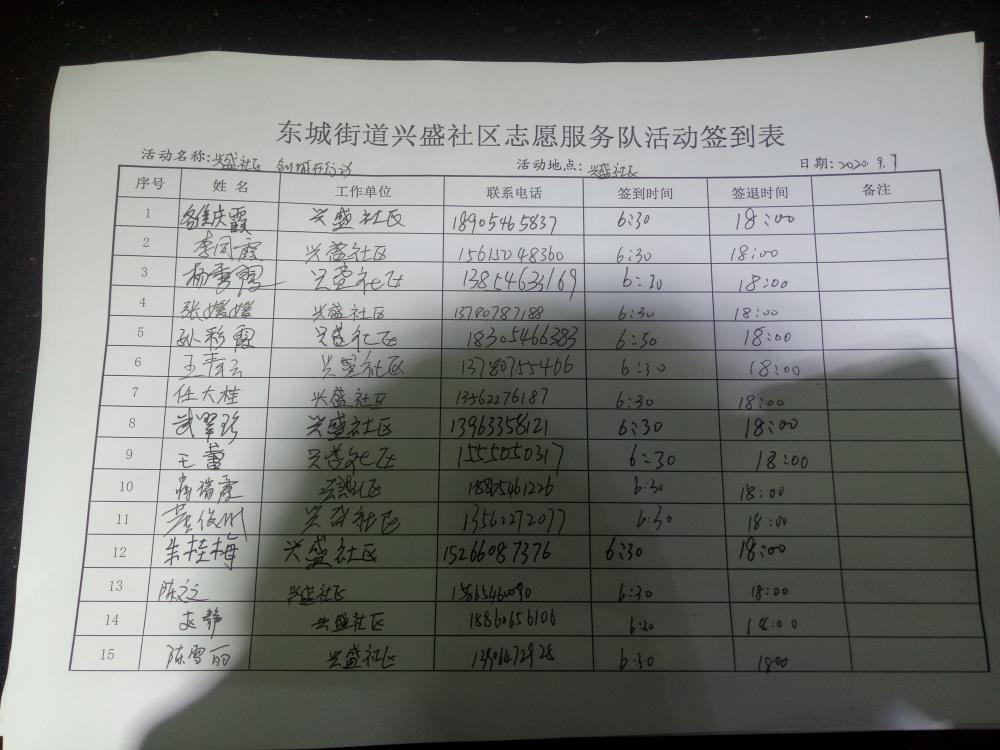 东城街道兴盛社区志愿服务队活动签到表
活动名称:兴盛社区 创城 活动地点:兴盛社区 日期:2020.9.7
序号 姓名 工作单位 联系电话 签到时间 签退时间 备注
1 兴盛社区 18905465837 6:30 18:00
2 李同霞 兴盛社区 15615048360 6:30 18:00
3 杨秀霞 兴盛社区 13854633169 6:30 18:00
4 张嫦嫦 兴盛社区 13780787188 6:30 18:00
5 孙彩霞 兴盛社区 18305466383 6:30 18:00
6 王青云 兴盛社区 13780755406 6:30 18:00
7 任大桂 兴盛社区 13562276187 6:30 18:00
8 武翠珍 兴盛社区 13963358121 6:30 18:00
9 王蕾 兴盛社区 1555050317 6:30 18:00
10 蒋瑞霞 兴盛社区 6:30 18:00
11 兴盛社区 13562272077 6:30 18:00
12 朱桂梅 兴盛社区 15266087376 6:30 18:00
13 兴盛社区 6:30 18:00
14 赵静 兴盛社区 18860656106 18:00
15 陈雪丽 兴盛社区 6:30 18:00